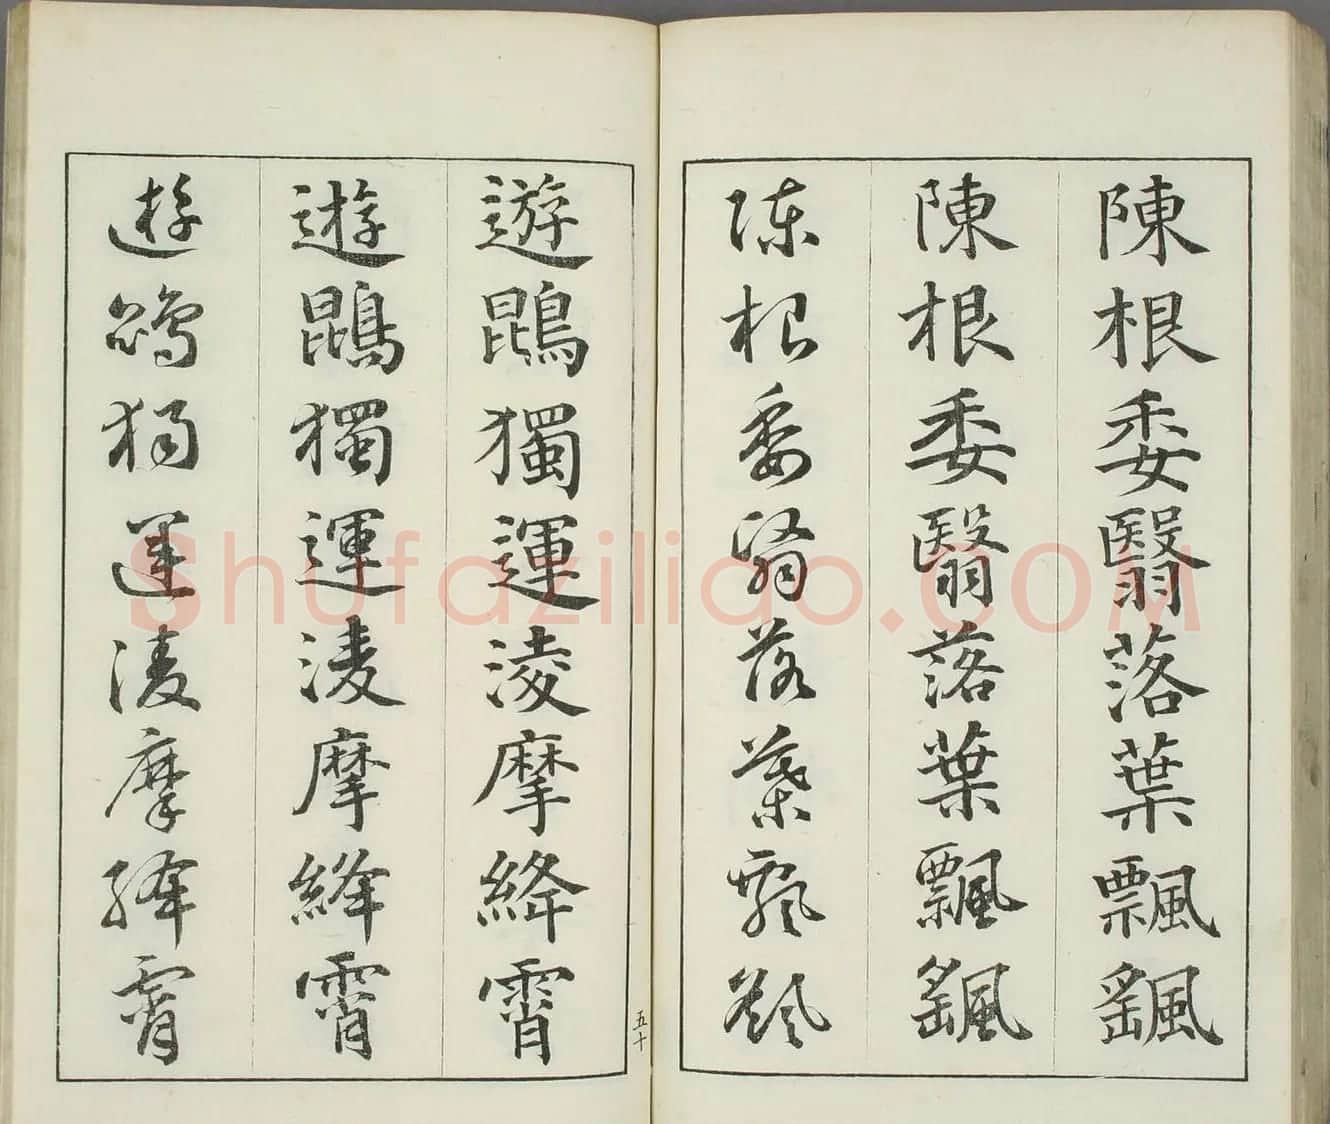 陳根委翳落葉飄颻
陳根委翳落葉飄颻
陳根委翳落葉飄颻
遊鵾獨運淩摩絳霄
遊鵾獨運淩摩絳霄
遊鵾獨運淩摩絳霄
五十
Shufaziliao.COM